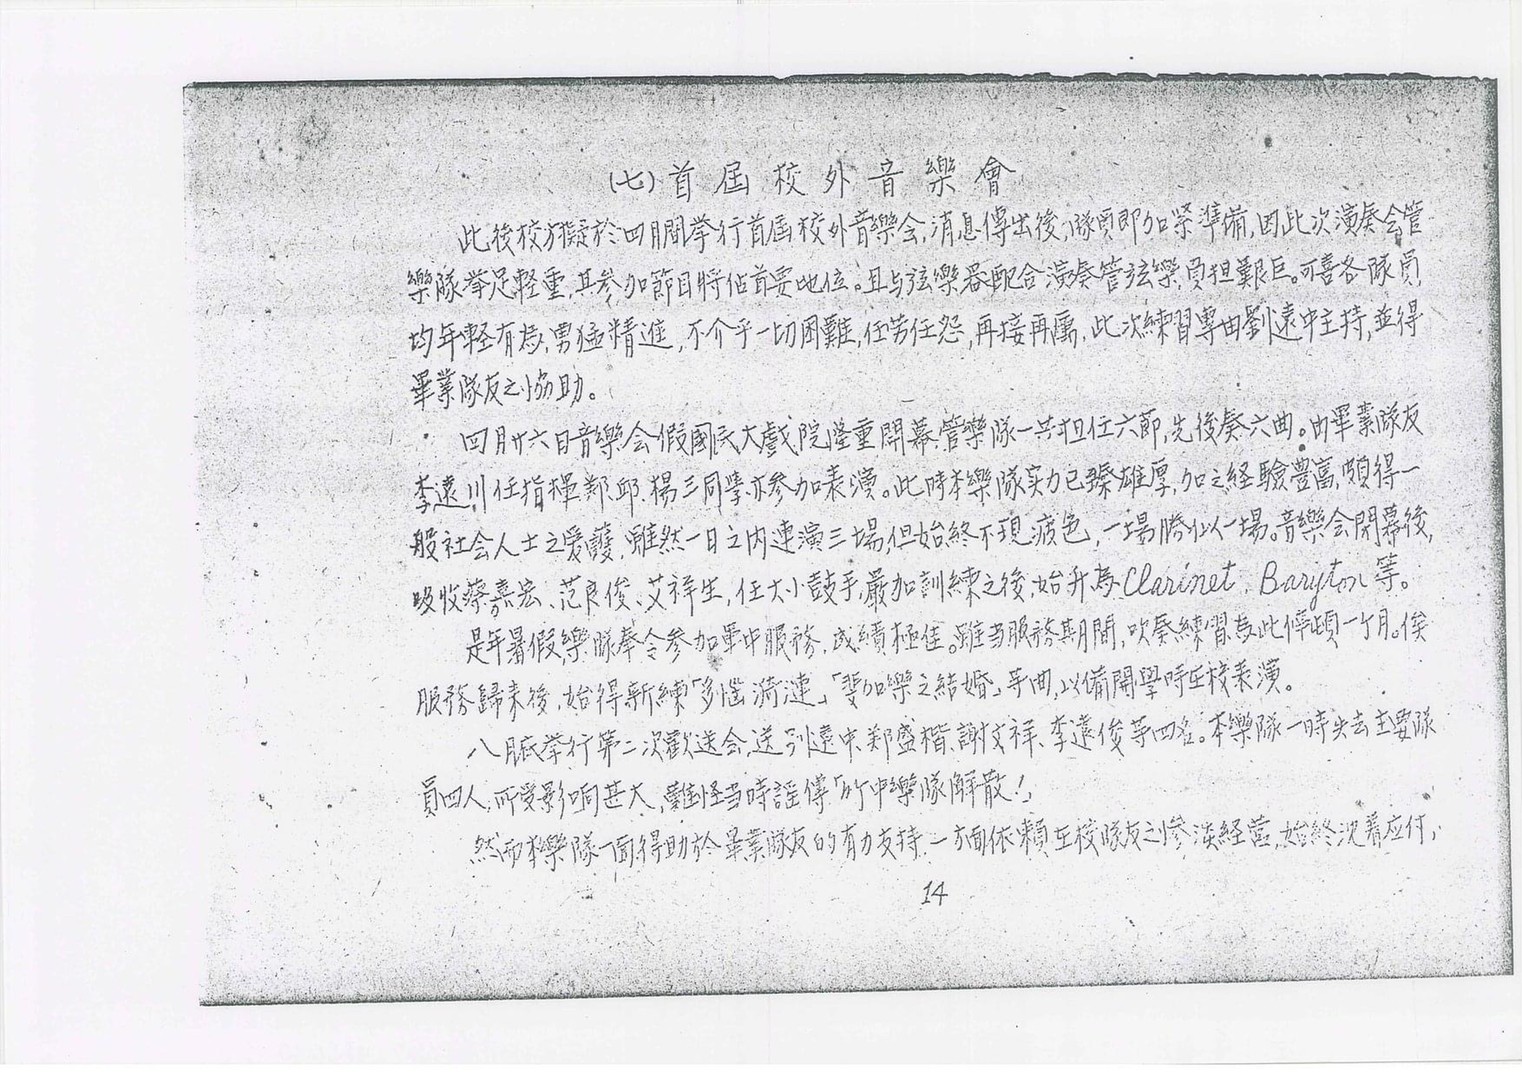 (七)首屆校外音樂會
此後校方擬於四月間举行首屆校外音樂会,消息傳出後,隊員即加紧準備,因此次演奏会管
樂隊举足輕重,其參加節目將佔首要地位。且与弦樂器配合演奏管弦樂,負担艱巨。可喜各隊員,
均年輕有為,勇猛精進,不介乎一切困難,任劳任怨,再接再厲,此次練習專由劉遠中主持,並得
畢業隊友之協助。
四月廿六日音樂会假國民大戲院隆重開幕,管樂隊一共担任六節,先後奏六曲。由畢業隊友
李遠川任指揮,鄭、邱、楊三同学亦參加表演。此時本樂隊实力已臻雄厚,加之経驗豊富,頗得一
般社会人士之愛護,雖然一日之内連演三場,但始終不現疲色,一場勝似一場。音樂会閉幕後,
吸收蔡嘉宏、范良俊、艾祥生,任大小鼓手,嚴加訓練之後,始升為Clarinet,Baryton等。
是年暑假,樂隊奉令參加軍中服務,成績極佳。雖当服務期間,吹奏練習為此停頓一个月。俟
服務歸来後,始得新練「多惱漪漣」「斐加樂之結婚」等曲,以備開學時在校表演。
八月底举行第二次歡送会,送別遠中、鄭盛楷、謝文祥、李遠俊等四名。本樂隊一時失去主要隊
員四人,所受影响甚大,難怪当時謠傳「竹中樂隊解散!」
然而本樂隊一面得助於畢業隊友的有力支持,一方面依賴在校隊友之惨淡経営,始終沈着应付,
14